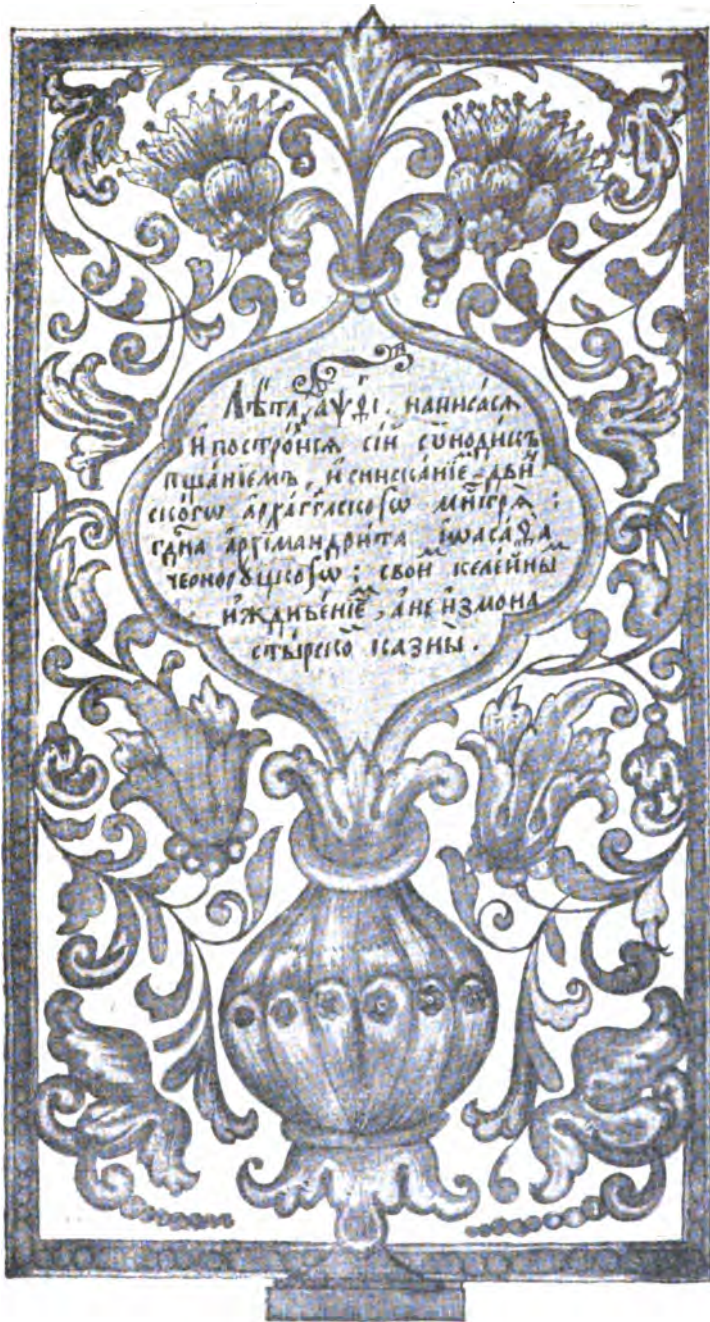 Лѣта, аѱд҃і. написася
и построися сїй сѵнодикъ
тщанїемъ, и снисканїе дви
скогѡ архагг҃лскогѡ мн҃стрѧ :
гдн҃а архїмандрита їѡасафа
чернорꙋцкогѡ : свои келейны
иждивенїе, а не из мона
стырско казны.